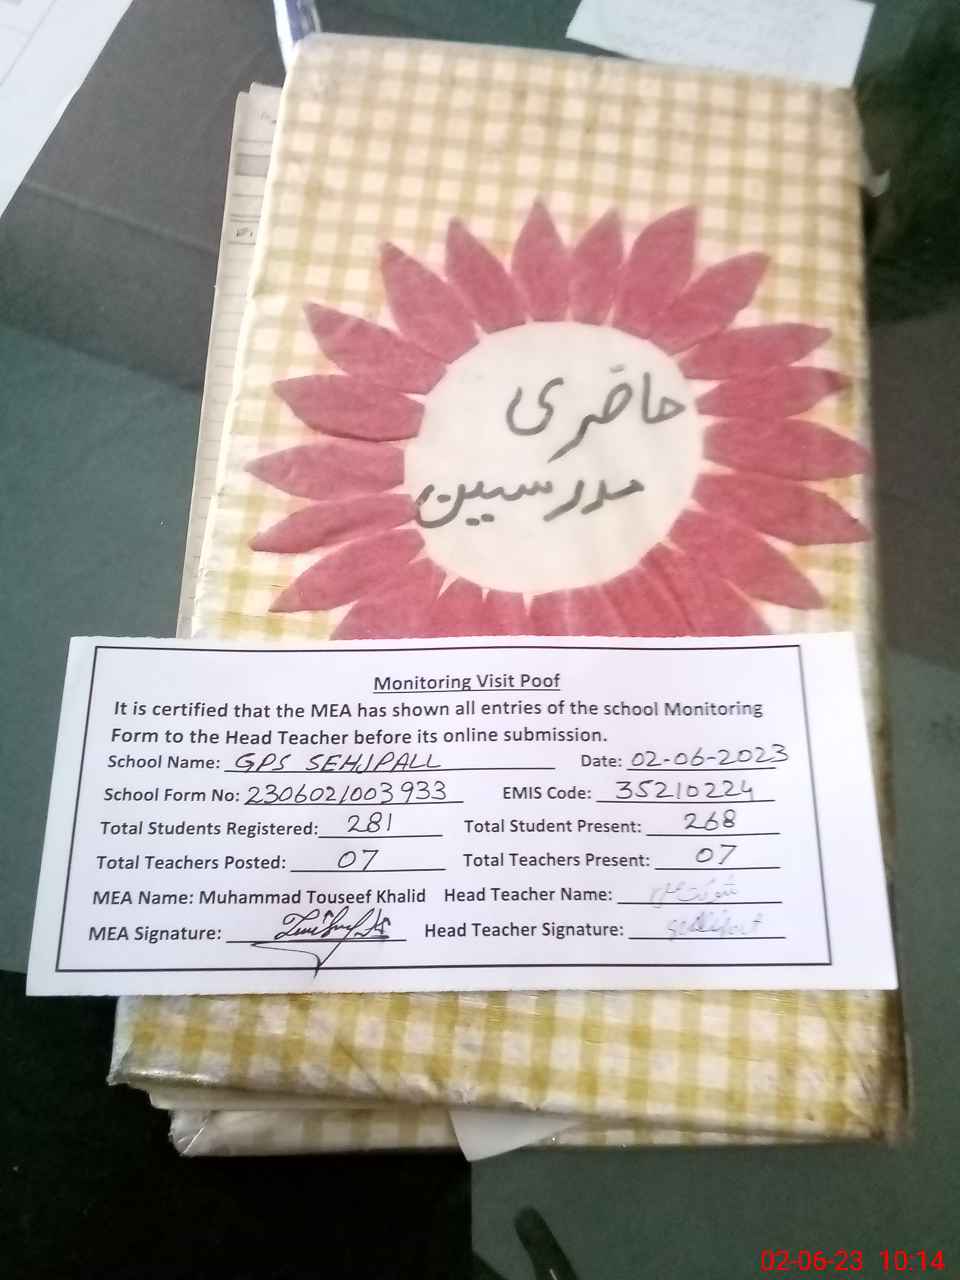 حاضری
مدرسین
Monitoring Visit Poof
It is certified that the MEA has shown all entries of the school Monitoring
Form to the Head Teacher before its online submission.
School Name: GPS SEHJPALL Date: 02-06-2023
School Form No: 2306021003933 EMIS Code: 35210224
Total Students Registered: 281 Total Student Present: 268
Total Teachers Posted: 07 Total Teachers Present: 07
MEA Name: Muhammad Touseef Khalid Head Teacher Name:
MEA Signature: Head Teacher Signature:
02-06-23 10:14